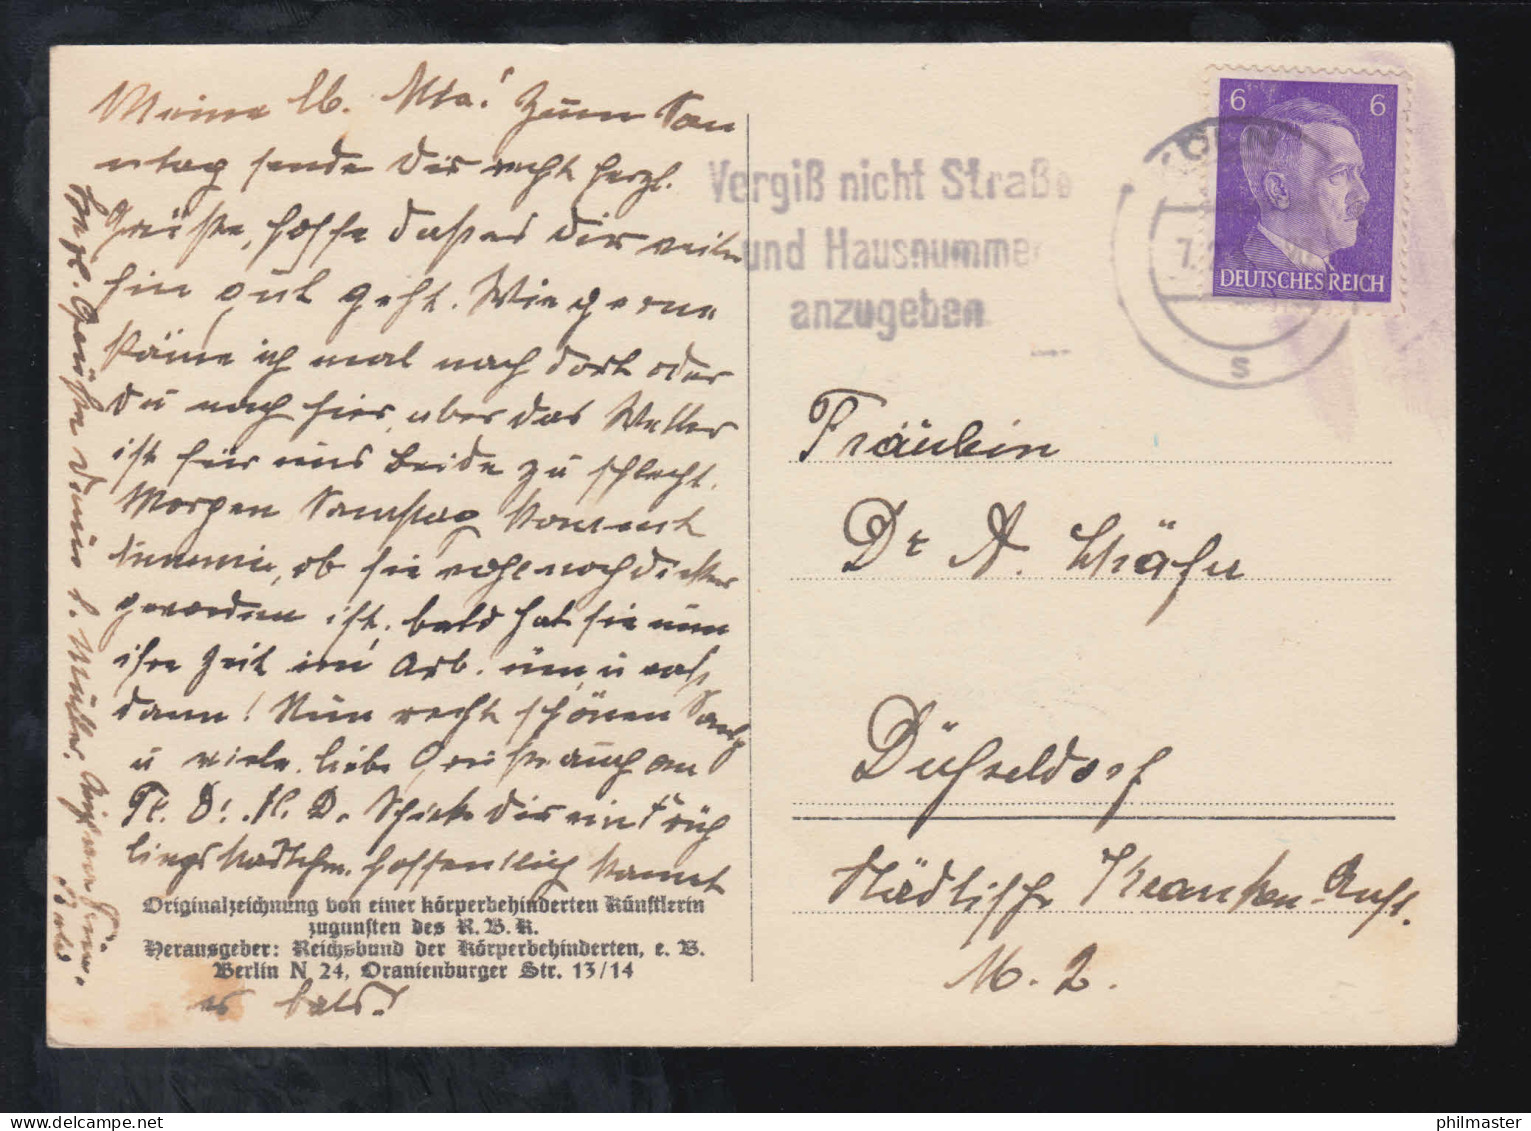 Meine lb. Mia! Zum Son
ntag sende Dir recht herzl.
Grüße, hoffe daß es dir weiter
hin gut geht. Wie gerne
käme ich mal nach dort oder
du nach hier, aber das Wetter
ist für uns beide zu schlecht.
Morgen Samstag kommt
ob sie wohl noch dicker
geworden ist, bald hat sie nun
ihre Zeit im Arb. um, u was
dann! Nun recht schönen Sonntg
u viele liebe Grüße auch an
Frl. Dr. D. Schicke Dir ein Früh
lings hoffentlich kommt
er bald!
Herzl. Grüße Deine L. Müller.
Auf Wiedersehn.
Bald
Originalzeichnung von einer körperbehinderten Künstlerin
zugunsten des R. B. K.
Herausgeber: Reichsbund der Körperbehinderten, e. V.
Berlin N 24, Oranienburger Str. 13/14
Vergiß nicht Straße
und Hausnummer
anzugeben
KÖLN
7.
s
6 6
DEUTSCHES REICH
Fräulein
Dr A. Schäfer
Düsseldorf
Städtische Kranken-Anst.
M. 2.
philmaster